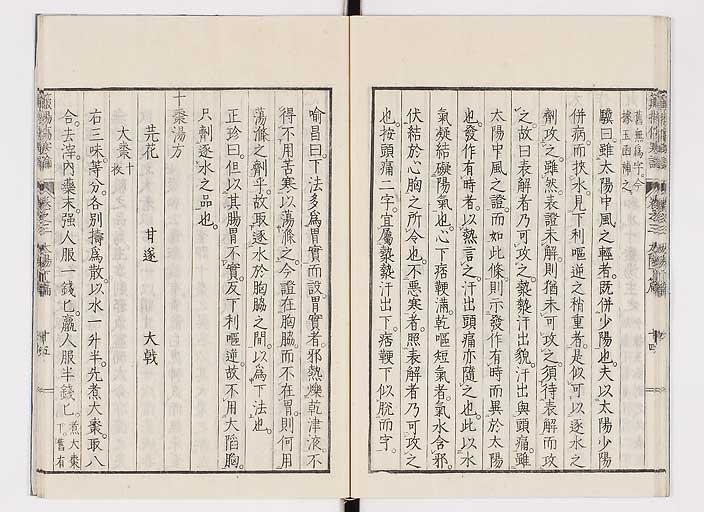 舊無爲字今
據玉函補之
驥曰雖太陽中風之輕者既併少陽也夫以太陽少陽
併病而挾水見下利嘔逆之稍重者是似可以逐水之
劑攻之雖然表證未解則猶未可攻之須待表解而攻
之故曰表解者乃可攻之漐漐汗出貌汗出與頭痛雖
太陽中風之證而如此條則示發作有時而異於太陽
也發作有時者以熱言之汗出頭痛亦隨之也此以水
氣凝結礙陽氣也心下痞鞕滿乾嘔短氣者氣水含邪
伏結於心胸之所令也不惡寒者照表解者乃可攻之
也按頭痛二字宜屬漐漐汗出下痞鞕下似脫而字
喻昌曰下法多爲胃實而設胃實者邪熱爍乾津液不
得不用苦寒以蕩滌之今證在胸脇而不在胃則何用
蕩滌之劑乎故取逐水於胸脇之間以爲下法也
正珍曰但以其腸胃不實反下利嘔逆故不用大陷胸
只劑逐水之品也
十棗湯方
芫花 甘遂 大戟
大棗十枚
右三味等分各別擣爲散以水一升半先煮大棗取八
合去滓內藥末强人服一錢匕羸人服半錢匕煮大棗
下舊有